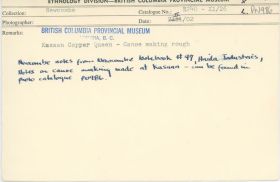 ETHNOLOGY DIVISION—BRITISH COLUMBIA PROVINCIAL MUSEUM
Collection: Newcombe Catalogue No.
Photographer: Date: /02
Remarks: BRITISH COLUMBIA PROVINCIAL MUSEUM
VICTORIA, B. C.
Kasaan Copper Queen - Canoe making rough
Newcombe notes from Newcombe Notebook # 47, Haida Industries,
Notes on canoe making made at Kasaan - can be found in
photo catalogue